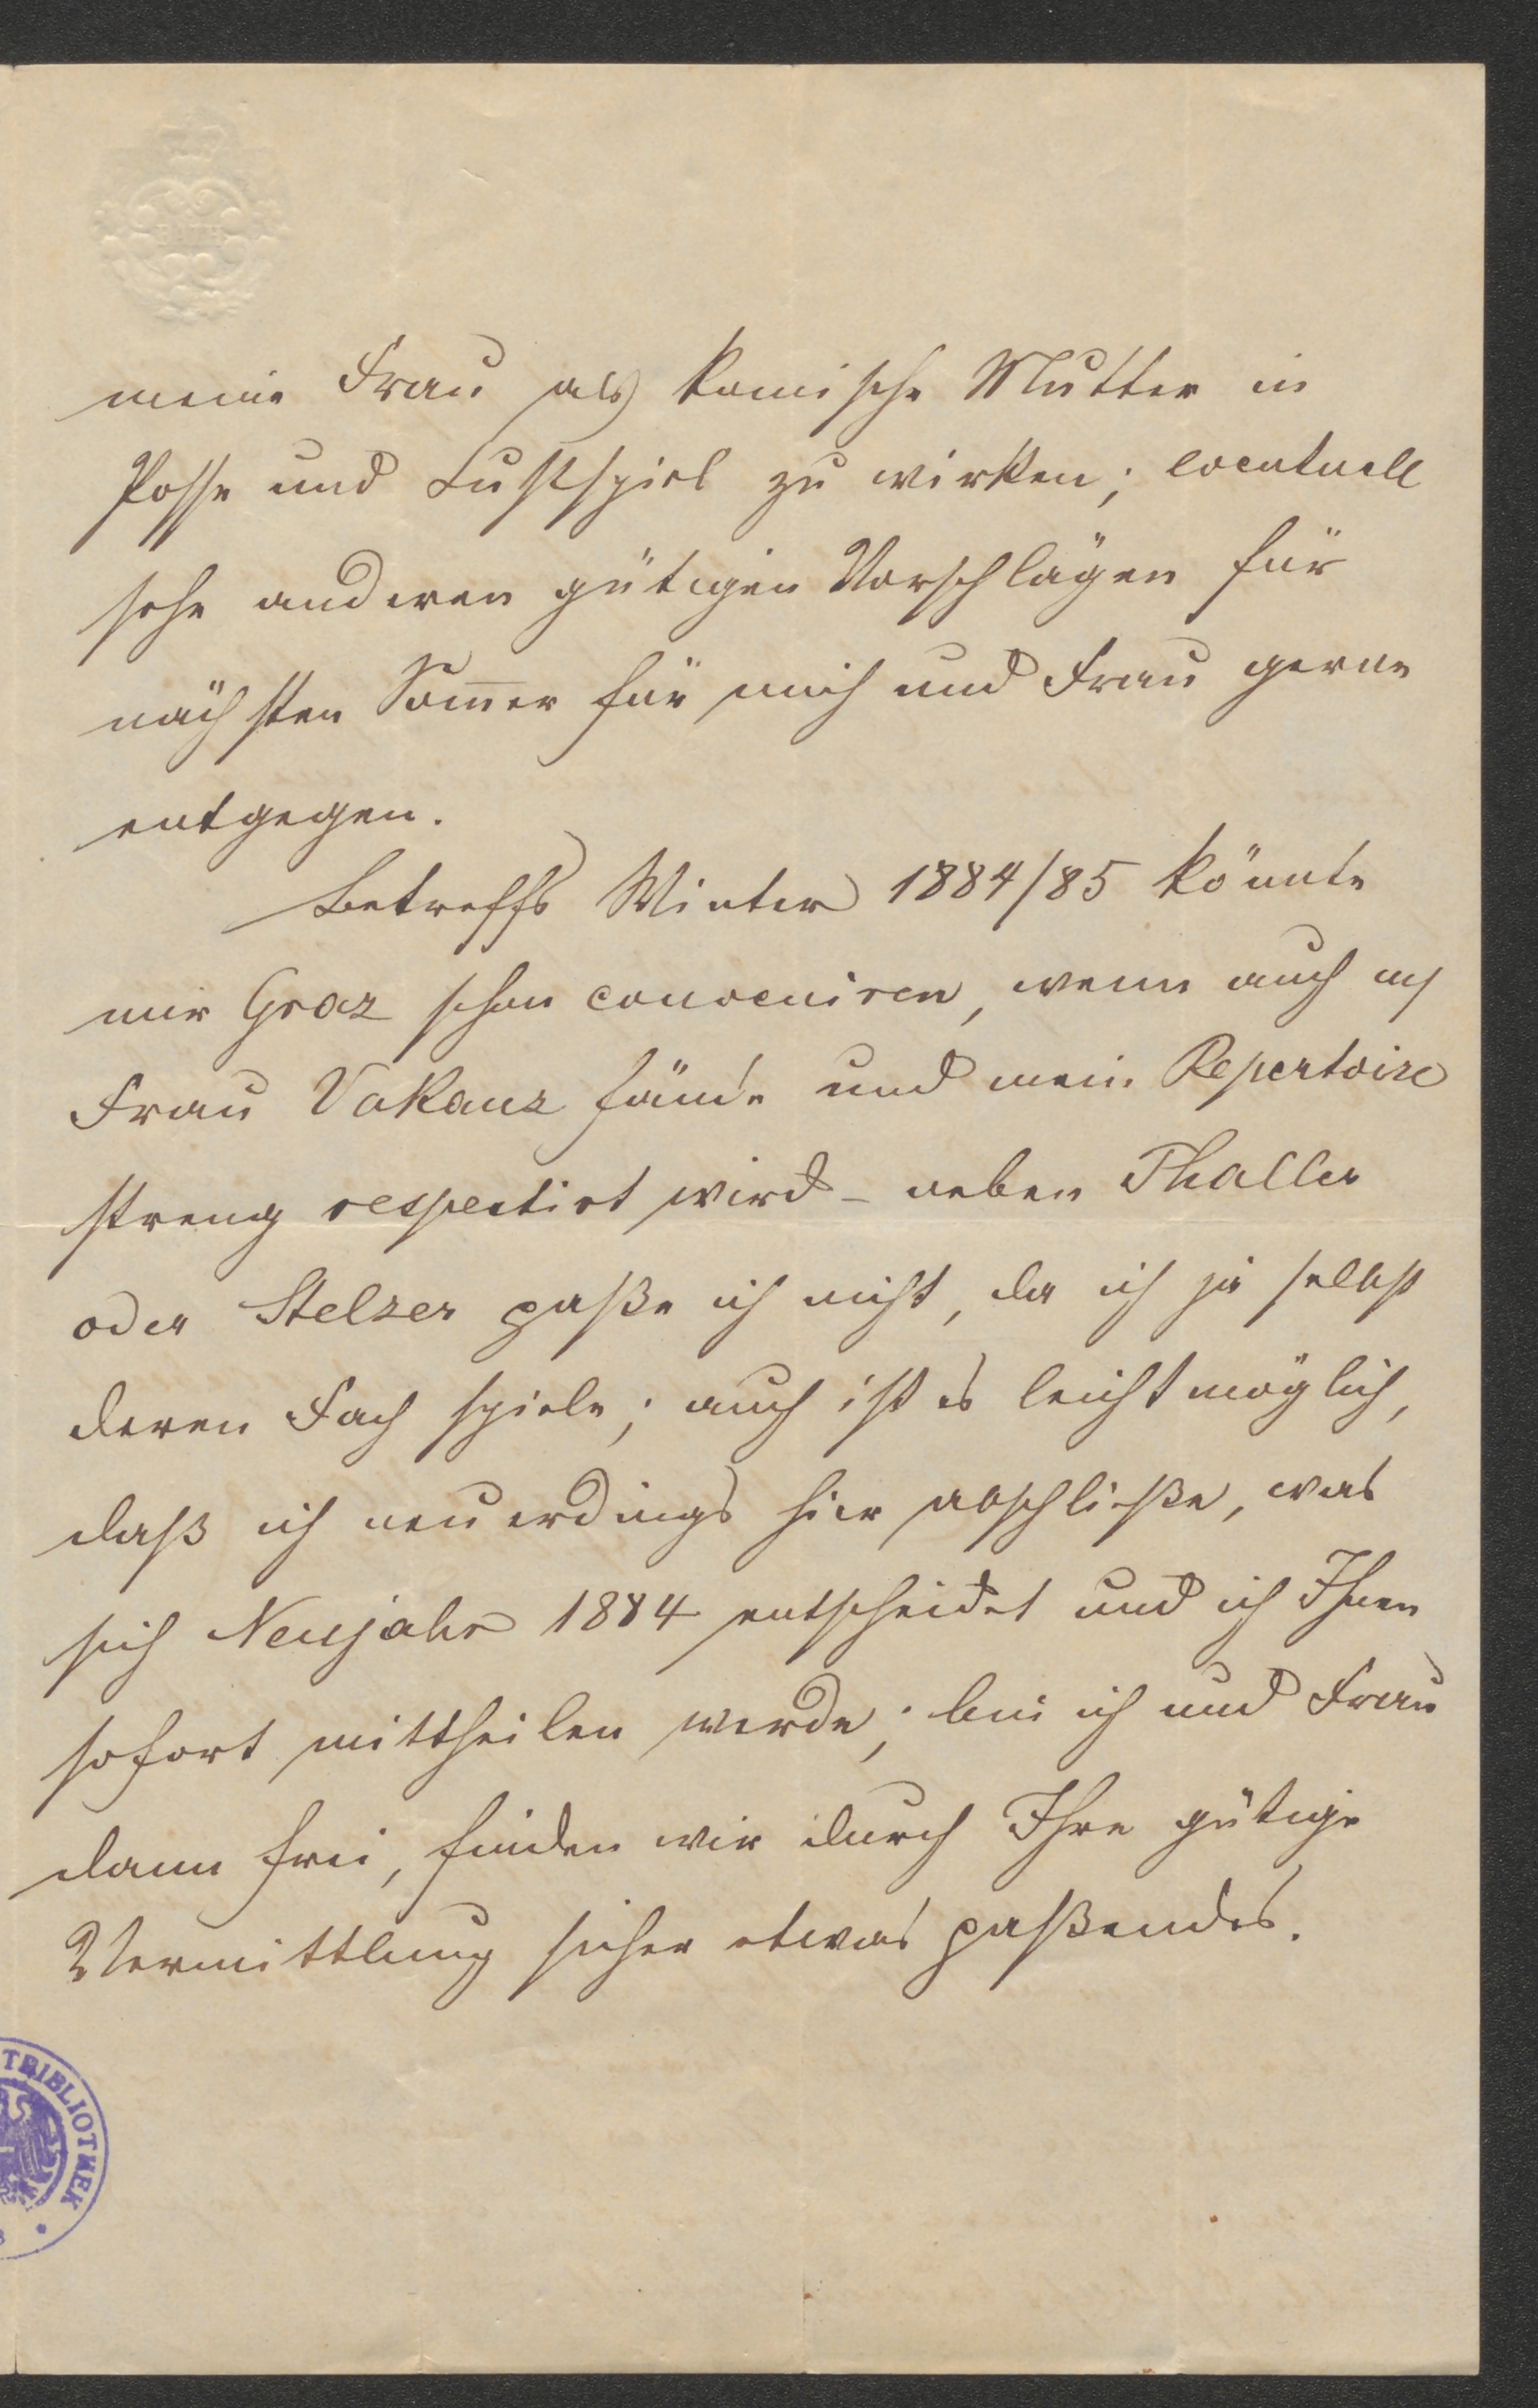 meine Frau als komische Mutter in
Posse und Lustspiel zu wirken; eventuell
sehe anderen gütigen Vorschlägen für
nächsten Som̅er für mich und Frau gerne
entgegen.
Betreffs Winter 1884/85 könnte
mir Graz schon conveniren, wenn auch
Frau Vakanz fände und mein Repertoire
streng respectirt wird – neben Thaller
oder Stelzer paße ich nicht, da ich ja selbst
deren Fach spiele; auch ist es leicht möglich,
daß ich neuerdings hier abschließe, was
sich Neujahr 1884 entscheidet und ich Ihnen
sofort mittheilen werde; bin ich und Frau
dann frei, finden wir durch Ihre gütige
Vermittlung sicher etwas paßendes.
TRIBLIOTHEK